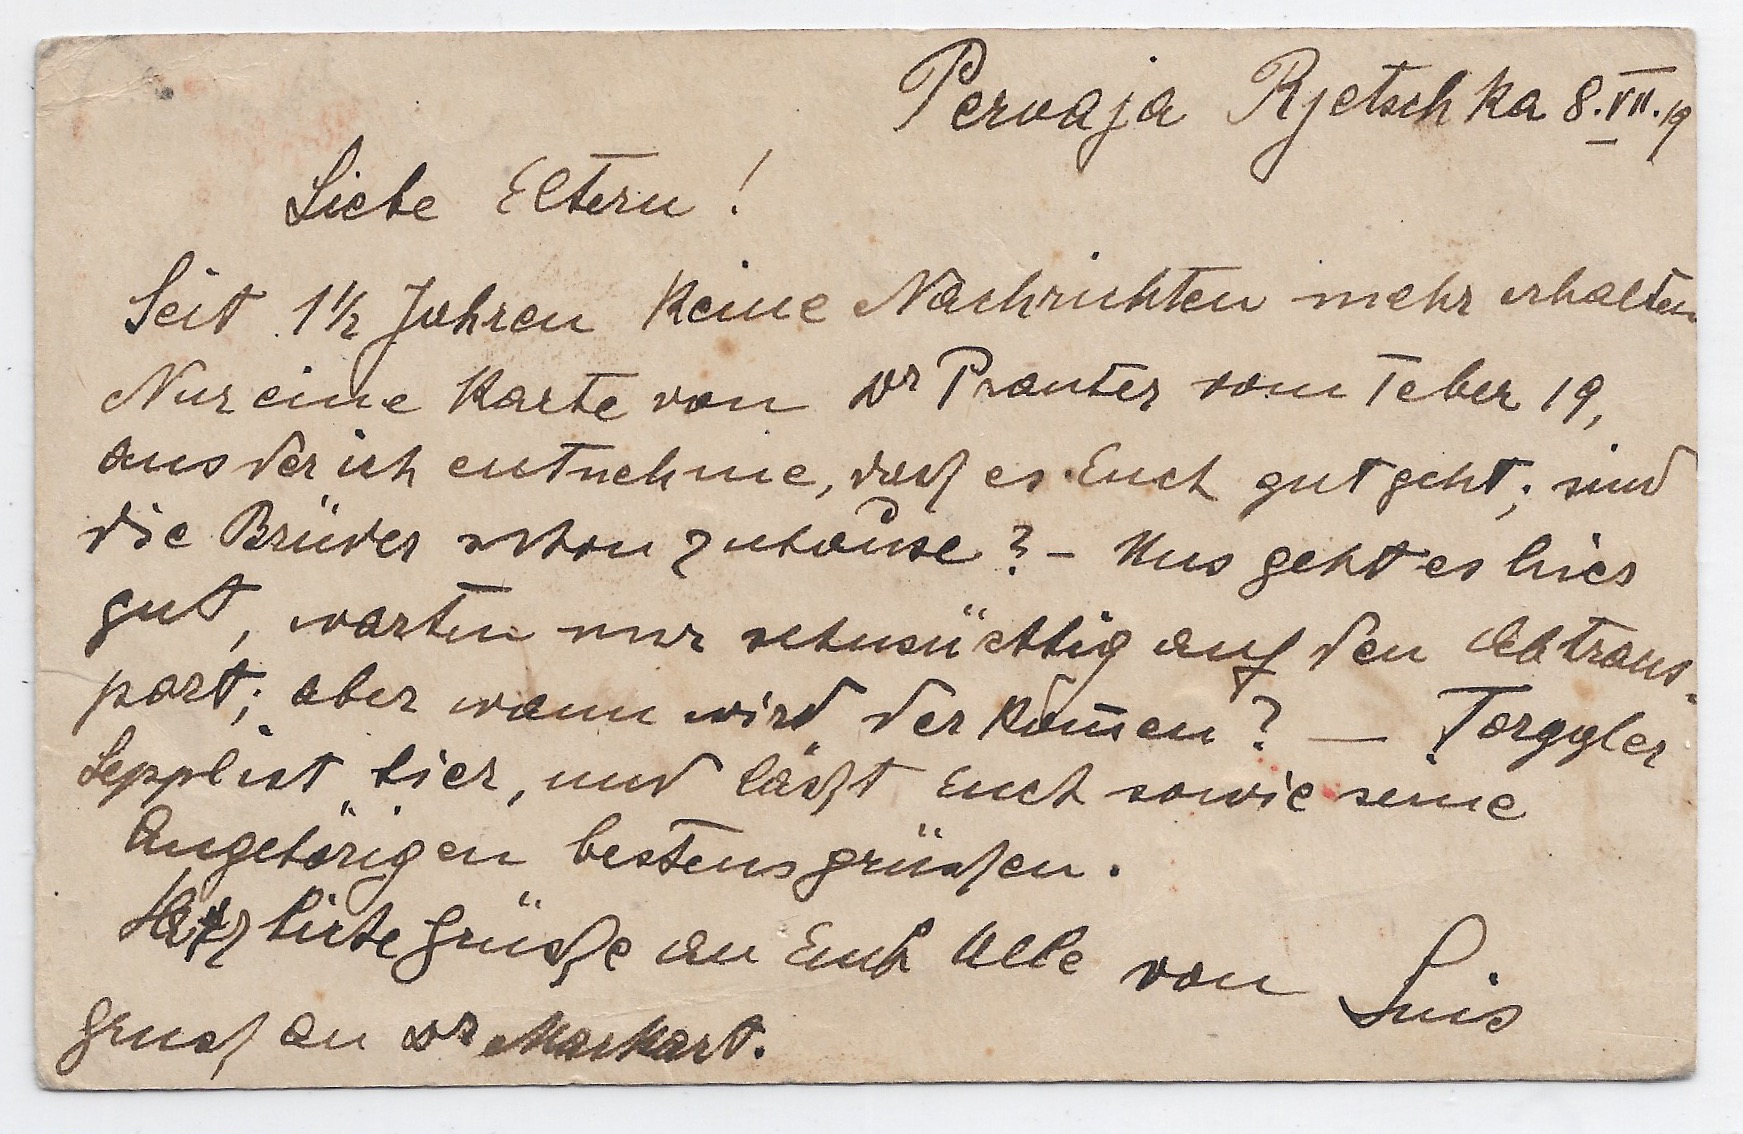 Pervaja Rjetschka 8.VII.19
Liebe Eltern!
Seit 1½ Jahren keine Nachrichten mehr erhalten
Nur eine Karte von Dr Pranter vom Feber 19,
aus der ich entnehme, daß es Euch gut geht; sind
die Brüder schon zuhause? – Uns geht es hier
gut, warten nur sehnsüchtig auf den Abtrans-
port; aber wann wird der kom̄en? — Torggler
Sepp ist hier, und läßt Euch sowie seine
Angehörigen bestens grüßen.
Herzlichte Grüße an Euch Alle von Luis
Gruß an Dr Markart.